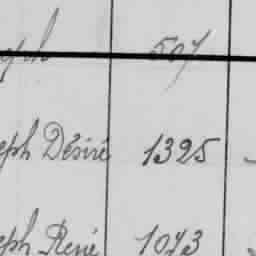 eph 507
eph Désiré 1325
eph René 1073